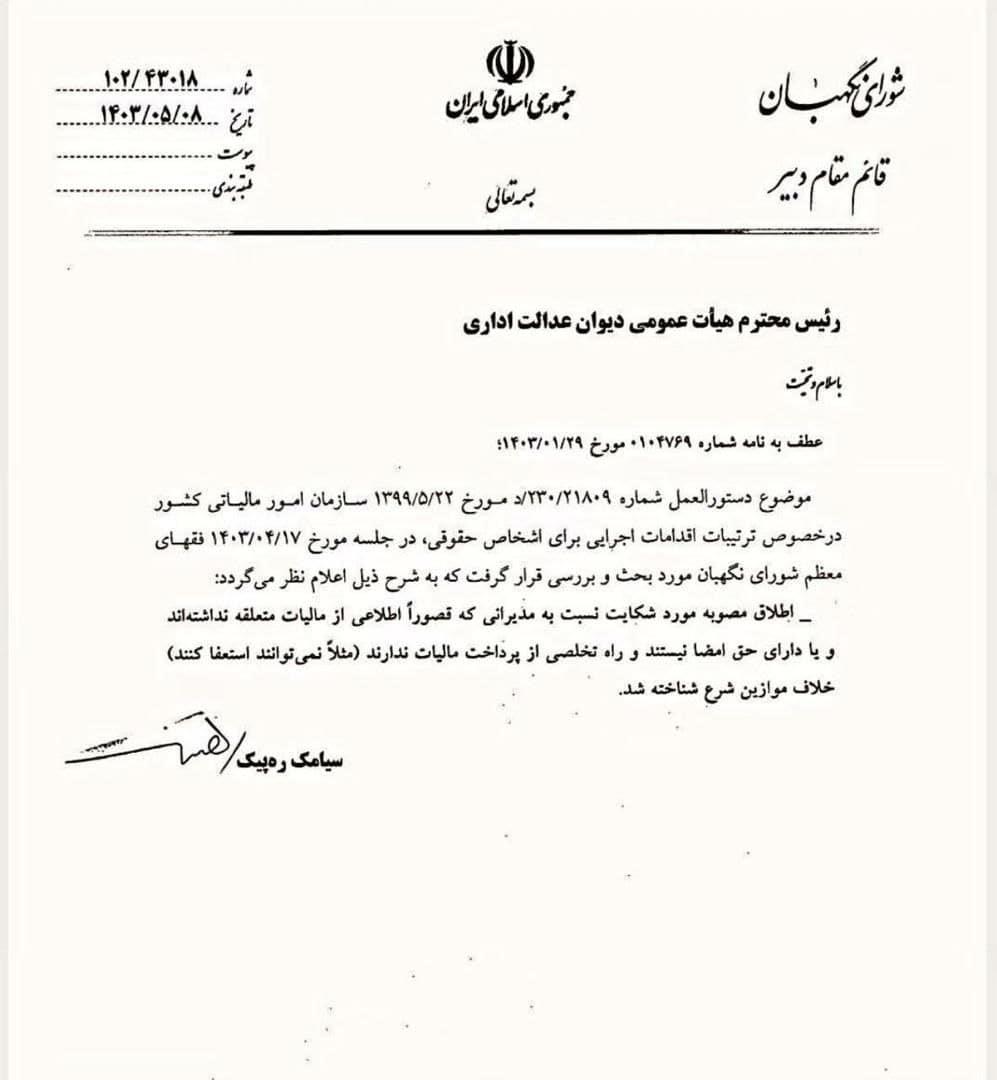 شورای نگهبان
قائم مقام دبیر
جمهوری اسلامی ایران
بسمه تعالی
شماره ۱۰۲/۴۳۰۱۸
تاریخ ۱۴۰۳/۰۵/۰۸
پیوست
طبقه بندی
رئیس محترم هیأت عمومی دیوان عدالت اداری
باسلام و تحیت
عطف به نامه شماره ۰۱۰۴۷۶۹ مورخ ۱۴۰۳/۰۱/۲۹؛
موضوع دستورالعمل شماره ۲۳۰/۲۱۸۰۹/د مورخ ۱۳۹۹/۵/۲۲ سازمان امور مالیاتی کشور
درخصوص ترتیبات اقدامات اجرایی برای اشخاص حقوقی، در جلسه مورخ ۱۴۰۳/۰۴/۱۷ فقهای
معظم شورای نگهبان مورد بحث و بررسی قرار گرفت که به شرح ذیل اعلام نظر می‌گردد:
_ اطلاق مصوبه مورد شکایت نسبت به مدیرانی که قصوراً اطلاعی از مالیات متعلقه نداشته‌اند
و یا دارای حق امضا نیستند و راه تخلصی از پرداخت مالیات ندارند (مثلاً نمی‌توانند استعفا کنند)
خلاف موازین شرع شناخته شد.
سیامک ره‌پیک